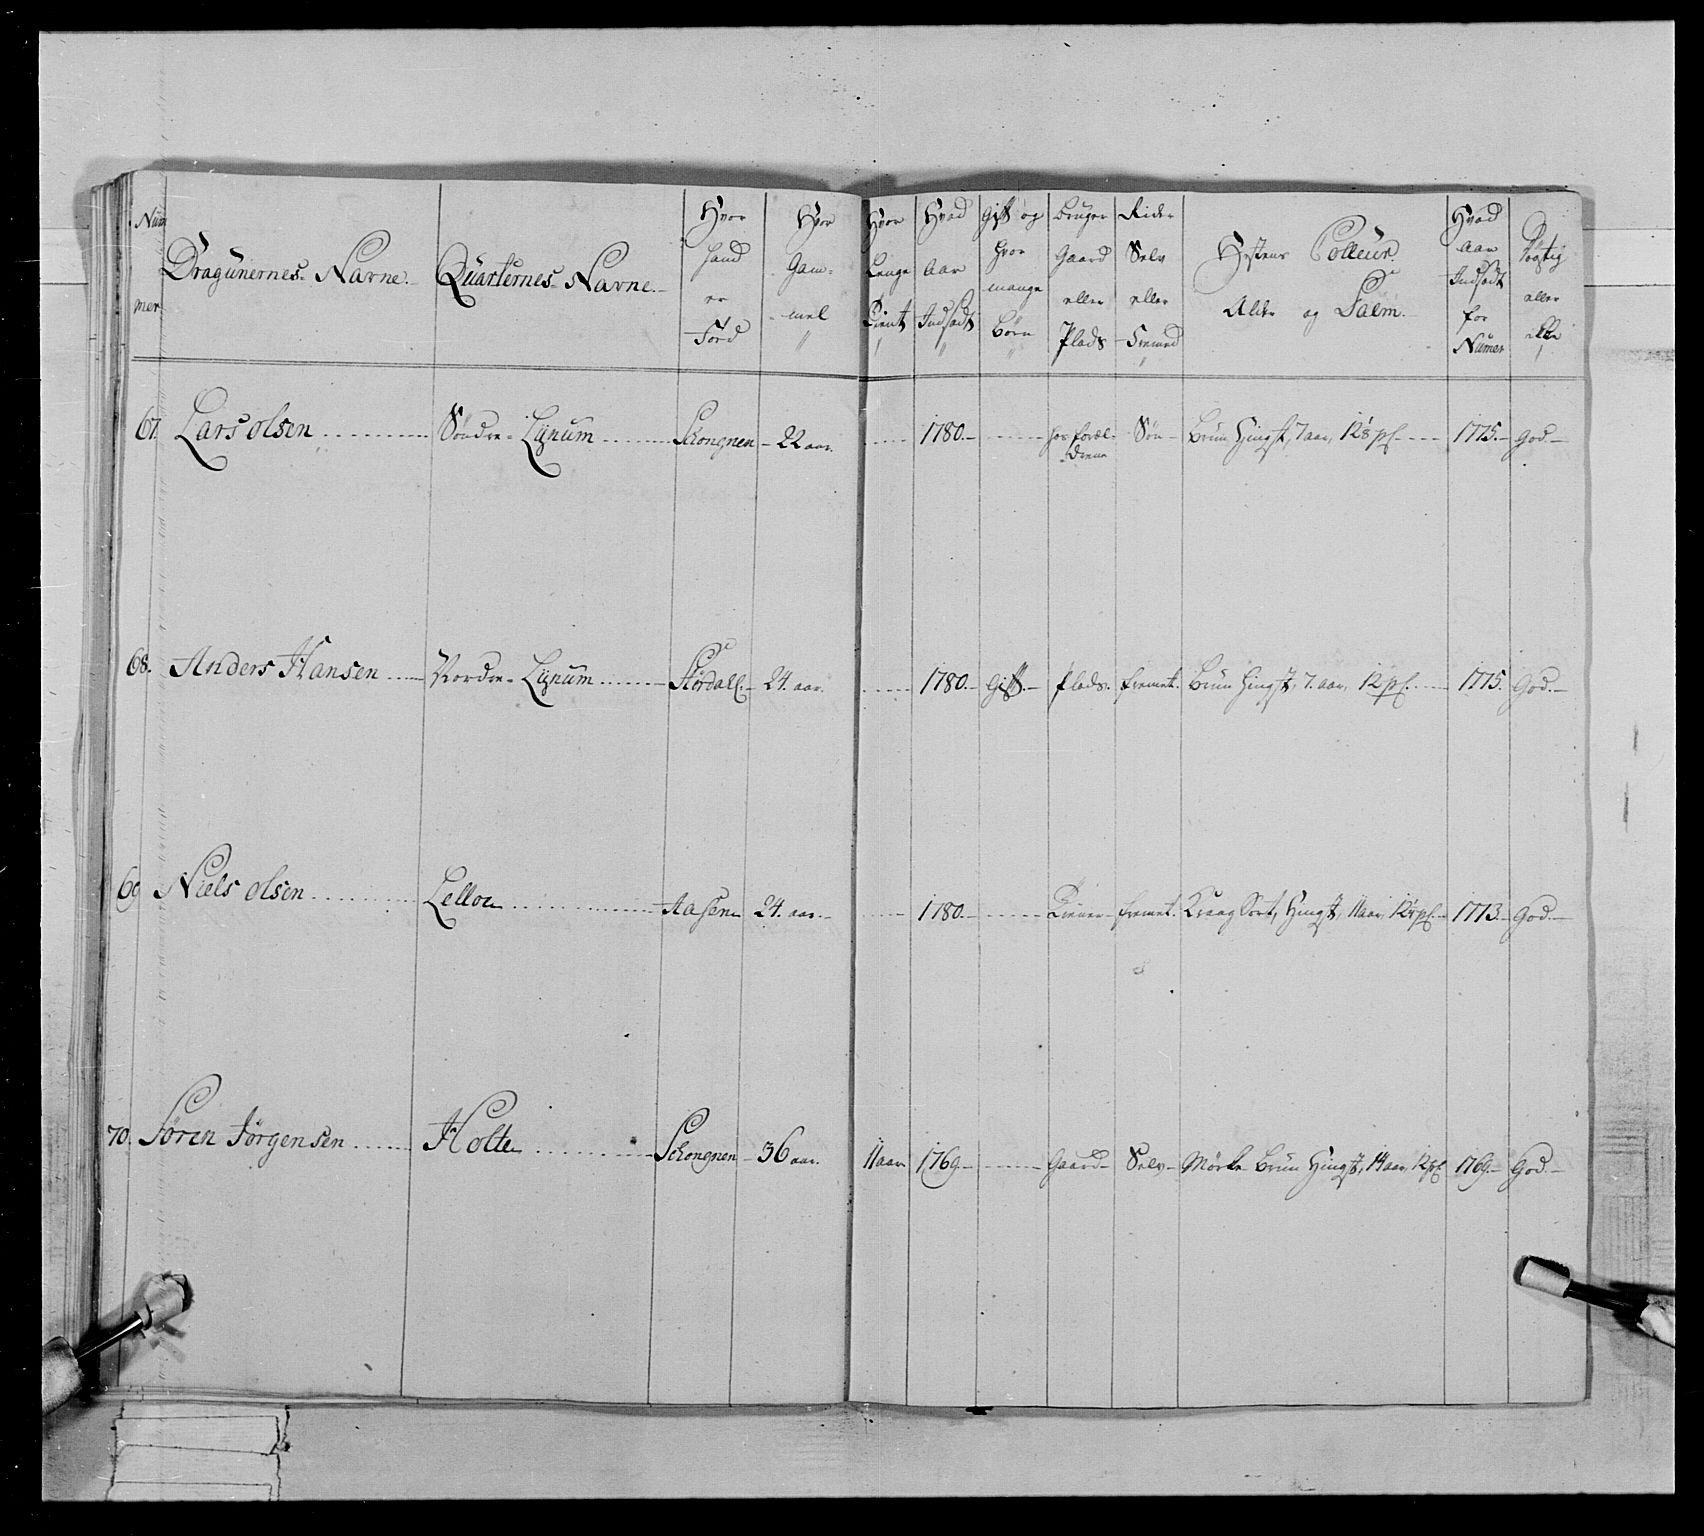 Num
mer
Dragunernes Navne.
Quarternes Navne
Hvor
hand
er
Föd
Hvor
Gam-
mel
Hvor
Lenge
Tient
Hvad
Aar
Indsadt
Gift og
hvor
mange
Börn
Bruger
Gaard
eller
Plads
Rider
Selv
eller
Fremed
Hestens Colleur
Alder og Palm.
Hvad
Aar
Indsadt
for
Numer
Dögtig
eller
ikke
67. Lars olsen Söndre Lynum Schongnen 22 aar. 1780. hos foræl- Sön Brun Hingst, 7 aar, 12⅛ pf. 1775. God.
drene
68. Anders Hansen Nordre Lynum Stördall. 24. aar. 1780. Gift. Plads. fremet. Brun Hingst, 7. aar, 12 pf. 1775. God.
69 Niels olsen Aasen 24. aar. 1780. Tiener fremet. Kraag Sort, Hingst, 11 aar, 1773. God.
70. Sören Jörgensen Holte Schongnen 36 aar. 11 aar 1769 Gaard Selv Mörke Brun Hingst, 14 aar, 12 pf 1769 God.